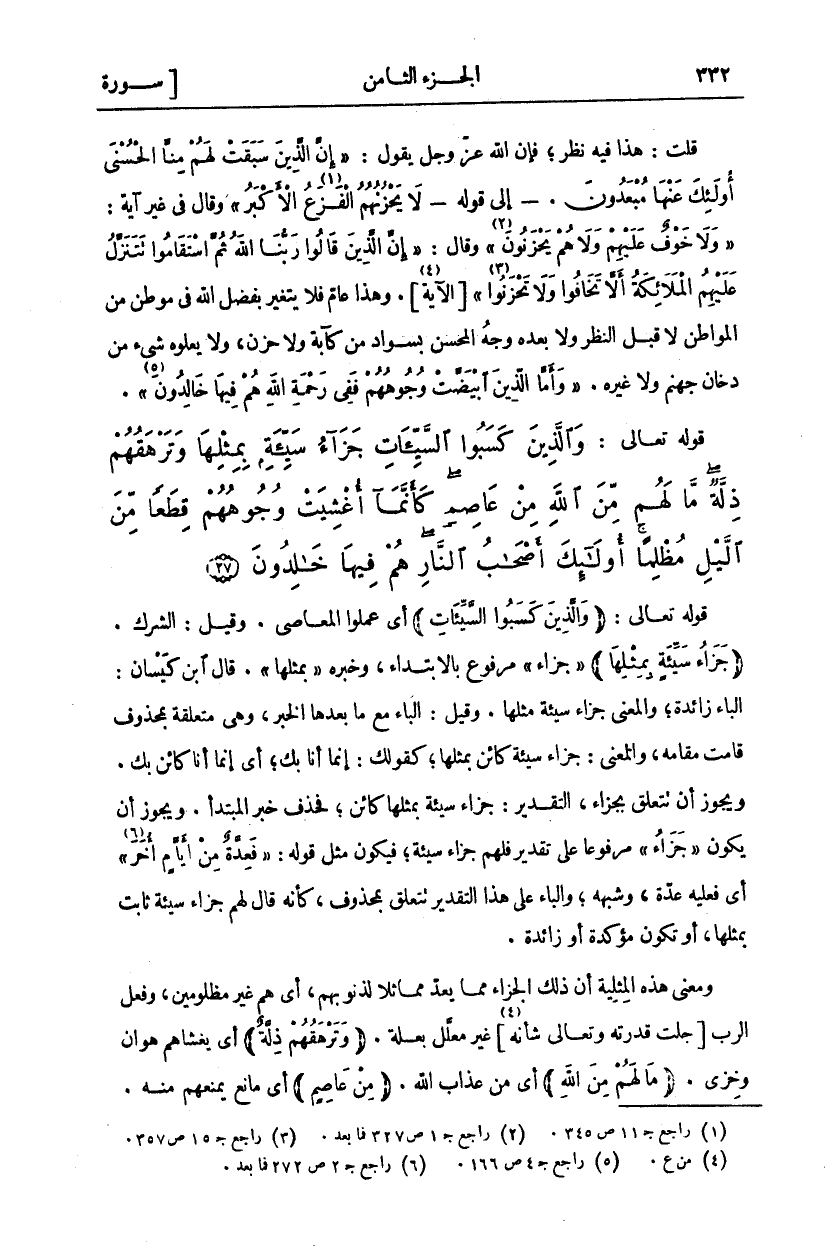 ٣٣٢ الجـزء الثامن [ ســورة
قلت : هذا فيه نظر ؛ فإن الله عزّ وجل يقول : « إِنَّ الَّذِينَ سَبَقَتْ لَهُمْ مِنَّا الْحُسْنَى
أُولَئِكَ عَنْهَا مُبْعَدُونَ . — إلى قوله — لَا يَحْزُنُهُمُ الْفَزَعُ الْأَكْبَرُ(١) » وقال فى غير آية :
« وَلَا خَوْفٌ عَلَيْهِمْ وَلَا هُمْ يَحْزَنُونَ(٢) » وقال : « إِنَّ الَّذِينَ قَالُوا رَبُّنَا اللهُ ثُمَّ اسْتَقَامُوا تَتَنَزَّلُ
عَلَيْهِمُ الْمَلَائِكَةُ أَلَّا تَخَافُوا وَلَا تَحْزَنُوا(٣) » [ الآية(٤) ] . وهذا عامّ فلا يتغير بفضل الله فى موطن من
المواطن لا قبل النظر ولا بعده وجهُ المحسن بسواد من كآبة ولا حزن، ولا يعلوه شىء من
دخان جهنم ولا غيره . « وَأَمَّا الَّذِينَ ابْيَضَّتْ وُجُوهُهُمْ فَفِى رَحْمَةِ اللهِ هُمْ فِيهَا خَالِدُونَ(٥) » .
قوله تعالى : وَٱلَّذِينَ كَسَبُوا ٱلسَّيِّـَٔاتِ جَزَآءُ سَيِّئَةٍۭ بِمِثْلِهَا وَتَرْهَقُهُمْ
ذِلَّةٌۖ مَّا لَهُم مِّنَ ٱللَّهِ مِنْ عَاصِمٍۖ كَأَنَّمَآ أُغْشِيَتْ وُجُوهُهُمْ قِطَعًا مِّنَ
ٱلَّيْلِ مُظْلِمًاۚ أُولَـٰٓئِكَ أَصْحَـٰبُ ٱلنَّارِۖ هُمْ فِيهَا خَـٰلِدُونَ ﴿٢٧﴾
قوله تعالى : ﴿ وَالَّذِينَ كَسَبُوا السَّيِّئَاتِ ﴾ أى عملوا المعاصى . وقيل : الشرك .
﴿ جَزَاءُ سَيِّئَةٍ بِمِثْلِهَا ﴾ « جزاء » مرفوع بالابتداء ، وخبره « بمثلها » . قال ابن كَيْسان :
الباء زائدة؛ والمعنى جزاء سيئة مثلها . وقيل : الباء مع ما بعدها الخبر ، وهى متعلقة بمحذوف
قامت مقامه، والمعنى : جزاء سيئة كائن بمثلها؛ كقولك : إنما أنا بك؛ أى إنما أنا كائن بك .
ويجوز أن تتعلق بجزاء ، التقدير : جزاء سيئة بمثلها كائن ؛ فحذف خبر المبتدأ . ويجوز أن
يكون « جَزَاءُ » مرفوعا على تقدير فلهم جزاء سيئة؛ فيكون مثل قوله: « فَعِدَّةٌ مِنْ أَيَّامٍ أُخَرَ(٦) »
أى فعليه عدّة ، وشبهه ؛ والباء على هذا التقدير تتعلق بمحذوف ، كأنه قال لهم جزاء سيئة ثابت
بمثلها، أو تكون مؤكدة أو زائدة .
ومعنى هذه المِثلية أن ذلك الجزاء مما يعدّ مماثلا لذنوبهم، أى هم غير مظلومين، وفعل
الرب [ جلت قدرته وتعالى شأنه(٤) ] غير معلّل بعلة . ﴿ وَتَرْهَقُهُمْ ذِلَّةٌ ﴾ أى يغشاهم هوان
وخِزى . ﴿ مَا لَهُمْ مِنَ اللهِ ﴾ أى من عذاب الله . ﴿ مِنْ عَاصِمٍ ﴾ أى مانع يمنعهم منه .
(١) راجع جـ ١١ ص ٣٤٥ . (٢) راجع جـ ١ ص ٣٢٧ فما بعد . (٣) راجع جـ ١٥ ص ٣٥٧ .
(٤) من ع . (٥) راجع جـ ٤ ص ١٦٦ . (٦) راجع جـ ٢ ص ٢٧٢ فما بعد .